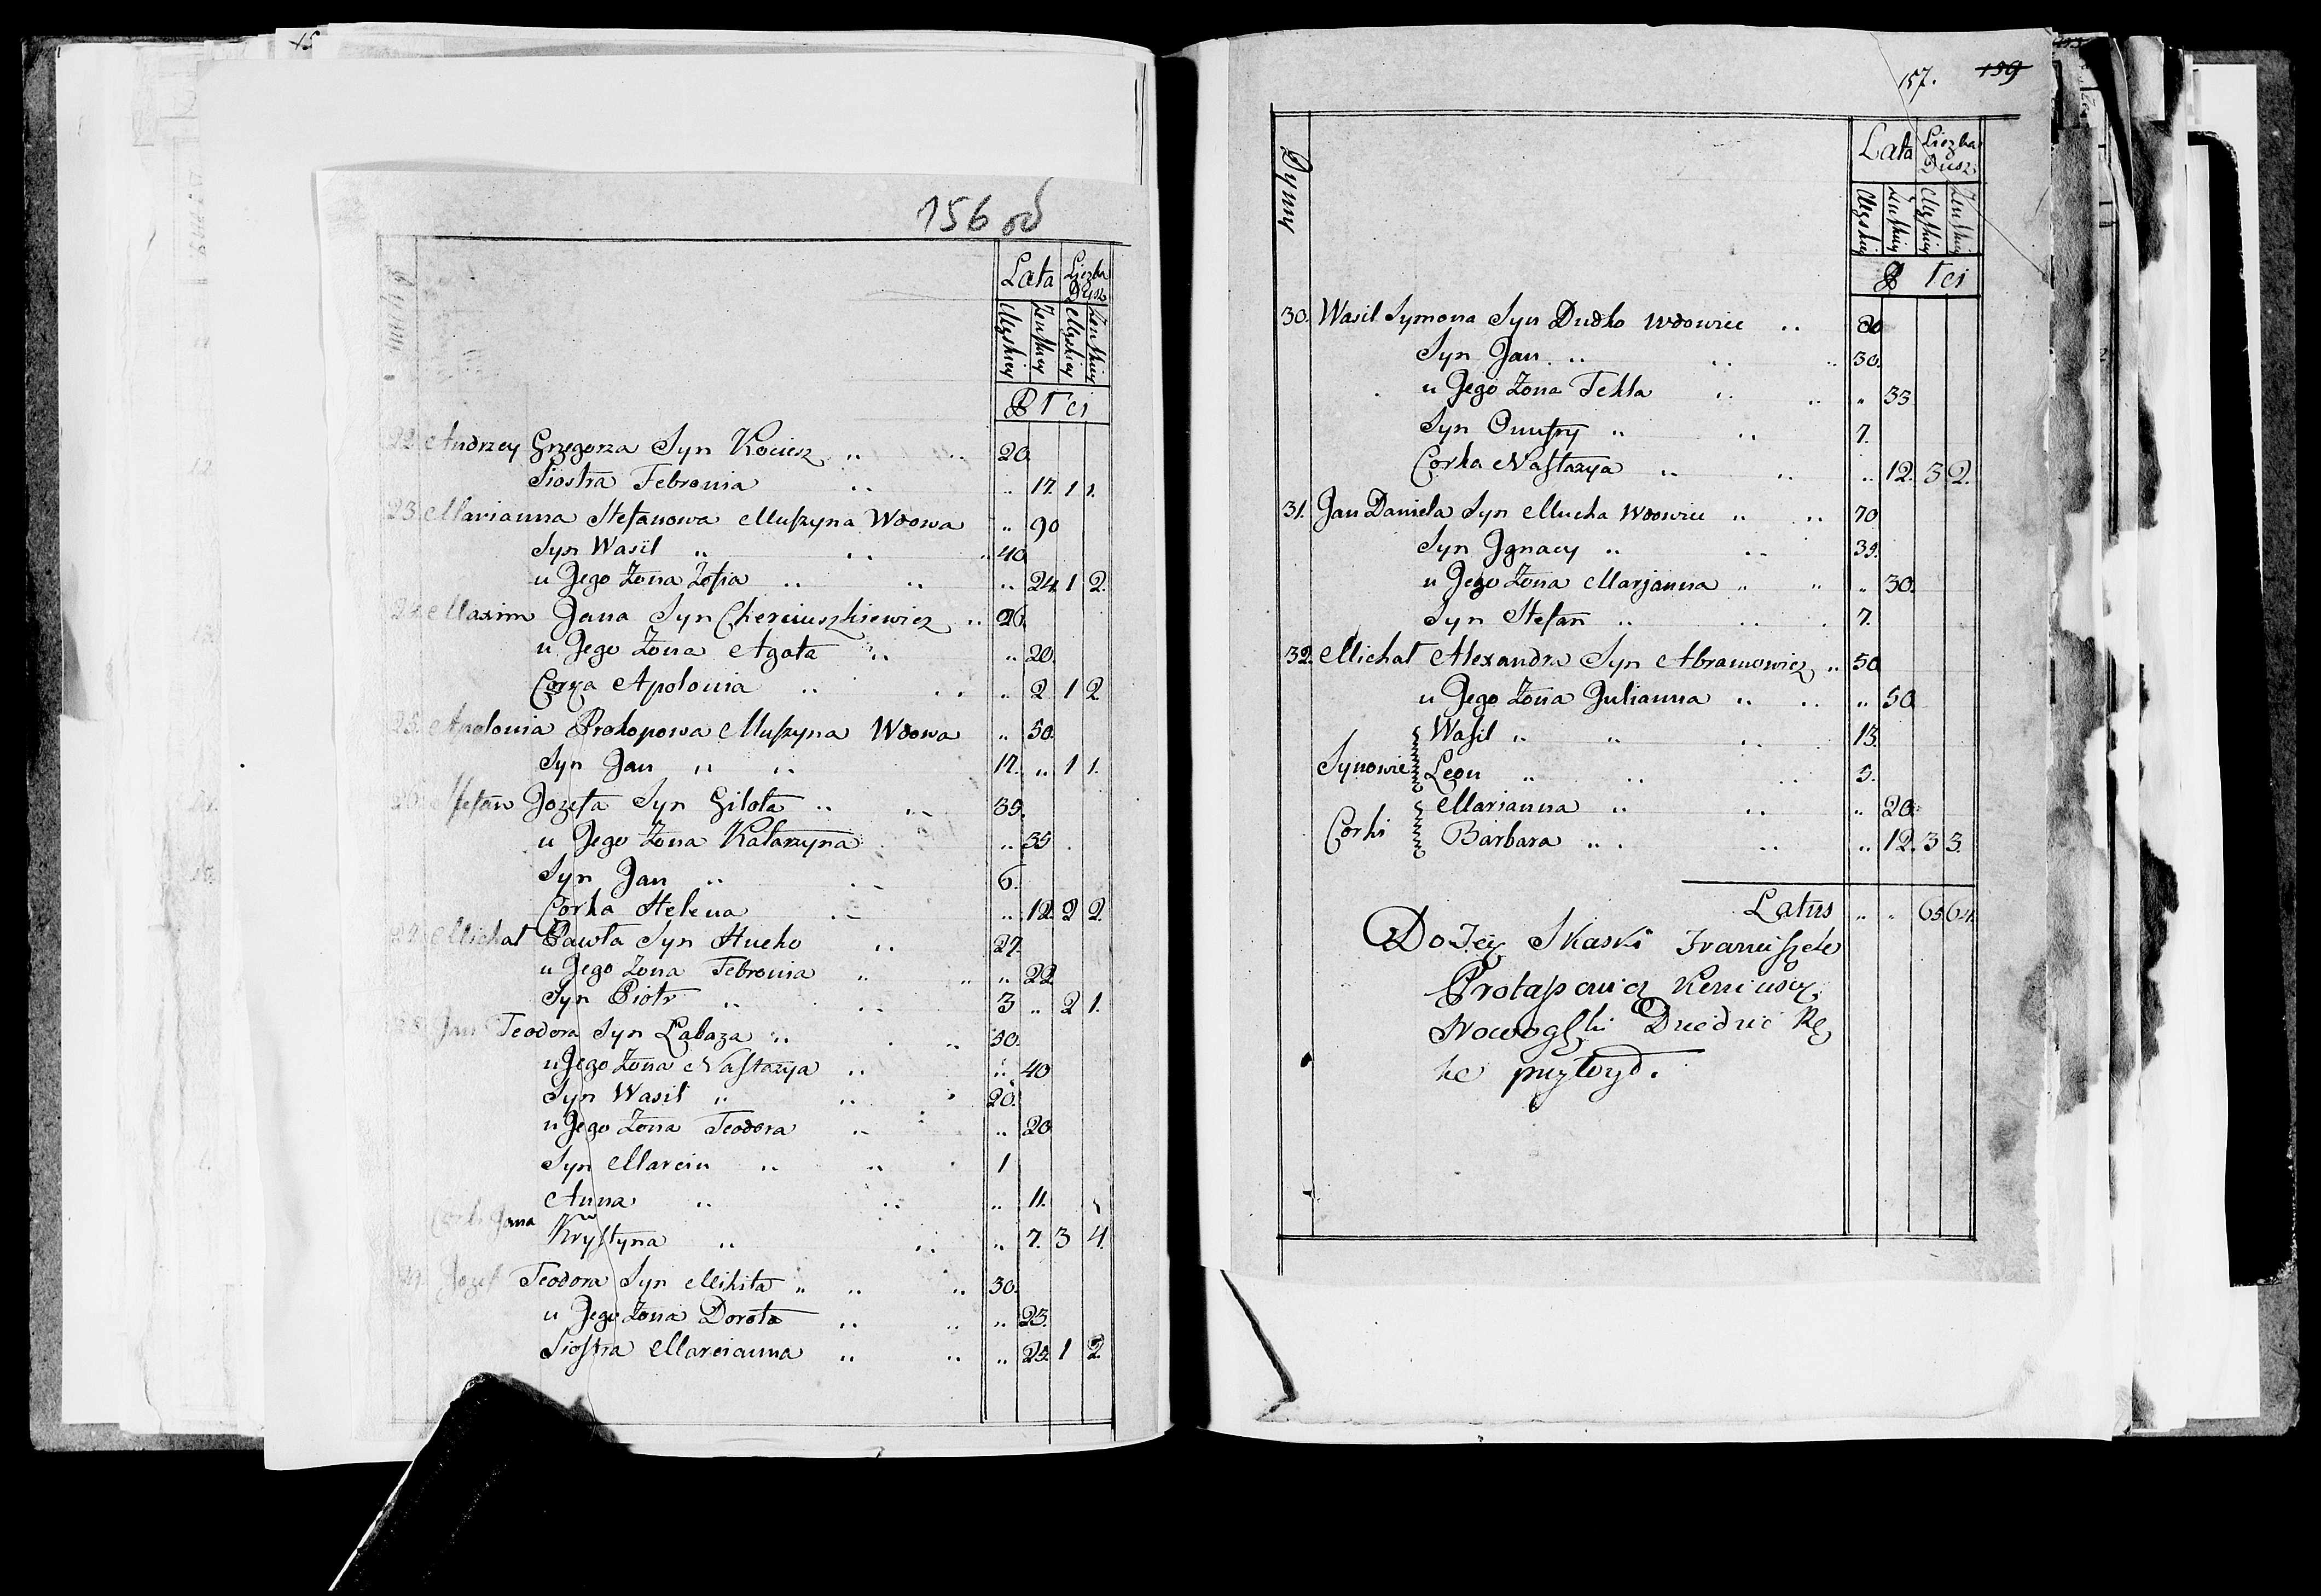 156 об
Lata Liczba Dusz
Męskiey Żeńskiey Męskiey Żeńskiey
P T ci
22. Andrzey Grzegorza Syn Kociesz „ „ 20.
Siostra Febronia „ „ 17. 1 1.
23. Marianna Stefanowa Muszyna Wdowa „ 90
Syn Wasil „ „ „ 40
u Jego Żona Zofia „ „ „ 24. 1 2.
24. Maxim Jana Syn Cherciuszkiewicz „ 26.
u Jego Żona Agata „ „ 20.
Corka Apolonia „ „ „ 2 1 2
25. Apolonia Prokopowa Muszyna Wdowa „ 50.
Syn Jan „ „ 17. „ 1 1.
26. Stefan Jozefa Syn Gilota „ „ 35.
u Jego Żona Katarzyna „ 35
Syn Jan „ „ 6.
Corka Helena „ „ 12. 2 2.
27. Michał Pawła Syn Hucko „ 27.
u Jego Żona Febronia „ „ „ 22.
Syn Piotr „ „ 3 „ 2 1.
28. Jan Teodora Syn Łabaza „ „ 50.
u Jego Żona Nastazya „ „ 40
Syn Wasil „ „ 20.
u Jego Żona Teodora „ „ 20
Syn Marcin „ „ 1
Anna „ „ „ 11.
Corki Jana
Krystyna „ „ „ 7. 3 4.
29. Jozef Teodora Syn Mikita „ „ „ 30.
u Jego Żona Dorota „ „ „ 23.
Siostra Marcianna „ „ „ 25. 1 2.
157. 159
Dymy
Lata Liczba Dusz
Męskiey Żeńskiey Męskiey Żeńskiey
P T ci
30. Wasil Symona Syn Dudko Wdowiec „ 80
Syn Jan „ „ „ 30.
u Jego Żona Tekla „ „ „ 33
Syn Onufry „ „ 7.
Corka Nastazya „ „ „ 12. 3 2.
31. Jan Daniela Syn Mucha Wdowiec „ „ 70
Syn Jgnacy „ „ 35.
u Jego Żona Marjanna „ „ „ 30.
Syn Stefan „ „ 7.
32. Michał Alexandra Syn Abramowicz „ 50
u Jego Żona Julianna „ „ „ 50
Wasil „ „ „ 13.
Synowie Leon „ „ „ 5.
Marianna „ „ „ 20.
Corki
Barbara „ „ „ 12. 3 3.
Latus „ „ 65 64.
Do Tey Skaski Franciszek
Protasowicz
Nowogski